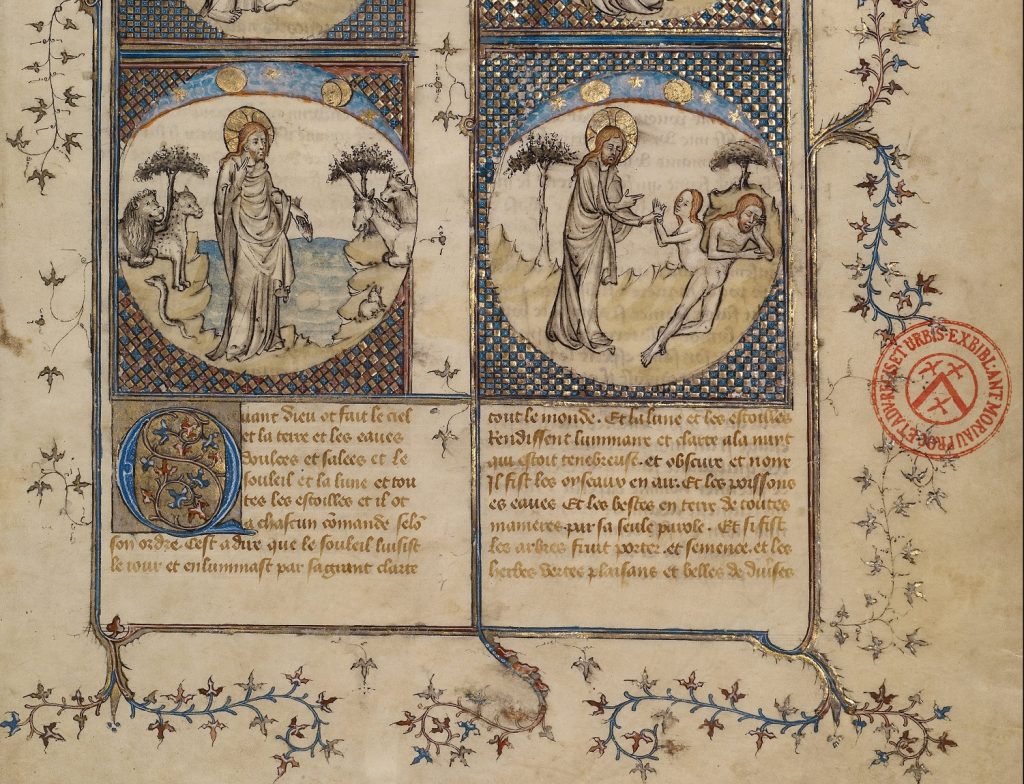 Quant dieu ot fait le ciel
et la terre et les eaues
doulces et salees et le
souleil et la lune et tou
tes les estoilles et il ot
a chascun cōmande selō
son ordre. Cest adire que le souleil luisist
le iour et enluminast par sa grant clarte
tout le monde. Et la lune et les estoilles
Rendissent luminaire et clarte ala nuyt
qui estoit tenebreuse. et obscure et noire
Il fist les oyseaux en air. Et les poissons
es eaues Et les bestes en terre de toutes
manieres. par sa seule parole. Et si fist
les arbres fruit porter. et semence. et les
herbes vertes plaisans et belles de diuises
URBIS-EXBIBLIANT MORIAU